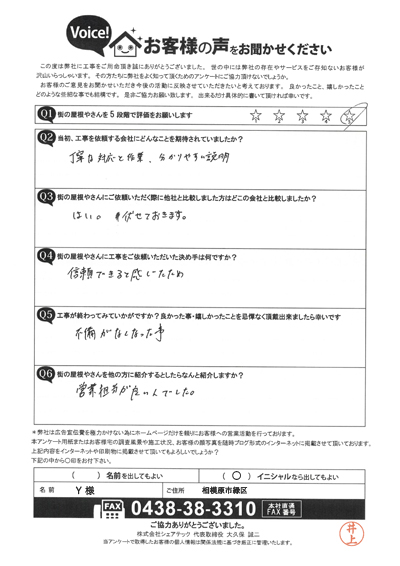 Voice!
お客様の声をお聞かせください
この度は弊社に工事をご用命頂き誠にありがとうございました。世の中には弊社の存在やサービスをご存知ないお客様が
沢山いらっしゃいます。その方たちに弊社をよく知って頂くためのアンケートにご協力頂けないでしょうか。
お客様のご意見をお聞かせいただき今後の活動に反映させていただきたいと考えております。良かったこと、嬉しかったこと
どのような些細な事でも結構です。是非ご協力お願い致します。出来るだけ具体的に書いて頂ければ幸いです。
Q1 街の屋根やさんを5段階で評価をお願いします
Q2 当初、工事を依頼する会社にどんなことを期待されていましたか?
丁寧な対応と作業、分かりやすい説明
Q3 街の屋根やさんにご依頼いただく際に他社と比較しました方はどこの会社と比較しましたか?
はい。伏せておきます。
Q4 街の屋根やさんに工事をご依頼いただいた決め手は何ですか?
信頼できると感じたため
Q5 工事が終わってみていかがですか?良かった事・嬉しかったことを忌憚なく頂戴出来ましたら幸いです
不備がなくなった事
Q6 街の屋根やさんを他の方に紹介するとしたらなんと紹介しますか?
営業担当が良い人でした。
*弊社は広告宣伝費を極力かけない為にホームページだけを頼りにお客様への営業活動を行っております。
本アンケート用紙またはお客様宅の調査風景や施工状況、お客様の顔写真を随時ブログ形式でのインターネットに掲載させて頂いております。
上記内容をインターネットや印刷物に掲載させて頂いてもよろしいでしょうか?
下記の中から〇印をお付下さい。
( )名前を出してもよい
(○)イニシャルなら出してもよい
名前 Y様 ご住所 相模原市緑区
FAX 0438-38-3310 本社直通FAX番号
ご協力ありがとうございました。
株式会社シェアテック 代表取締役 大久保 誠二
当アンケートで取得したお客様の個人情報は関係法規に基づき厳正に管理いたします。
井上